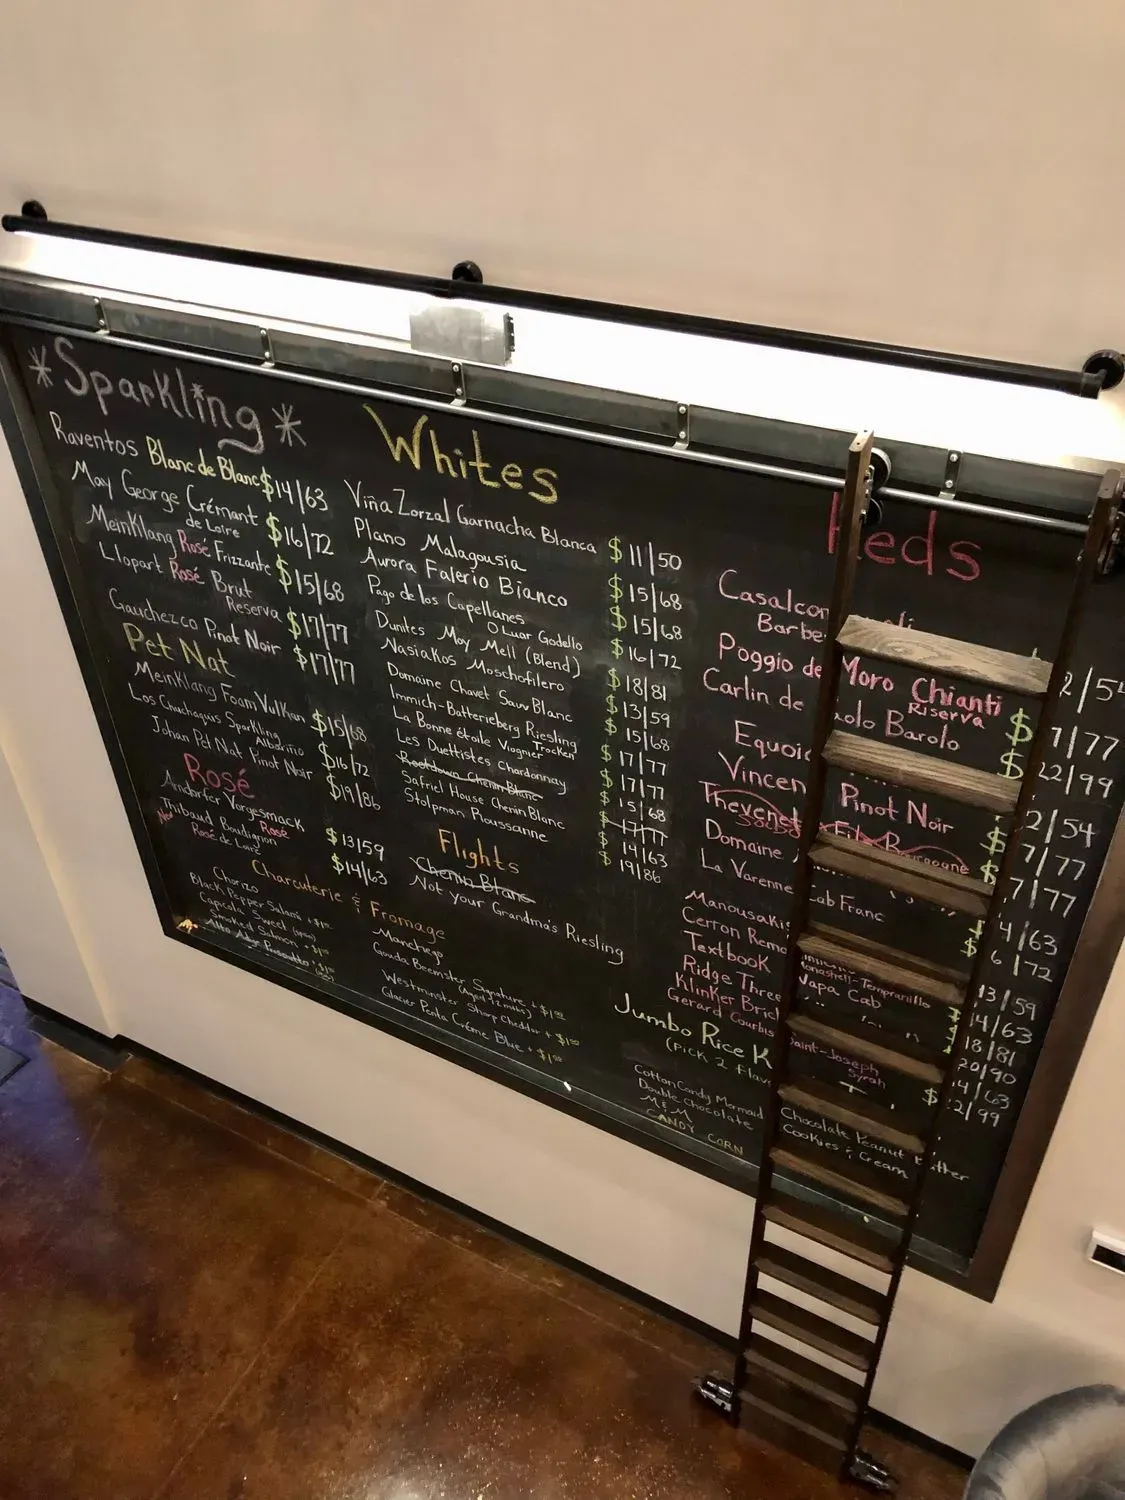 *Sparkling*
Raventos Blanc de Blanc $14/63
May George Crémant
de Loire $16/72
MeinKlang Rosé Frizzante $15/68
Llopart Rosé Brut
Reserva $17/77
Gauchezco Pinot Noir $17/77
Pet Nat
MeinKlang Foam VulKan $15/68
Los Chuchaquis Sparkling
Albariño $16/72
Johan Pet Nat Pinot Noir $19/86
Rosé
Arndorfer Vorgesmack Rosé $13/59
Thibaud Boudignon
Rosé de Loire $14/63
Whites
Viña Zorzal Garnacha Blanca $11/50
Plano Malagousia $15/68
Aurora Falerio Bianco $15/68
Pago de los Capellanes
O Luar Godello $16/72
Dunites Moy Mell (Blend) $18/81
Nasiakos Moschofilero $13/59
Domaine Chavet Sauv Blanc $15/68
Immich-Batterieberg Riesling
Trocken $17/77
La Bonne étoile Viognier $17/77
Les Duettistes Chardonnay $15/68
Chenin Blanc $17/77
Safriel House Chenin Blanc $14/63
Stolpman Roussanne $19/86
Flights
Chenin Blanc
Not your Grandma's Riesling
Charcuterie & Fromage
Chorizo
Black Pepper Salami +$1⁰⁰
Capcolla Sweet
Smoked Salmon +$1⁰⁰
Prosciutto +$1⁰⁰
Manchego
Gouda Beemster Signature
(Aged 12 months) +$1⁰⁰
Westminster Sharp Cheddar +$1⁰⁰
Glacier Penta Créme Blue +$1⁰⁰
Reds
Casalcon
Barbe
2/54
Poggio de Moro Chianti
Riserva $17/77
Carlin de olo Barolo $22/99
Equoi Pinot Noir $12/54
Vincen $17/77
Thevenet Bourgogne $17/77
Domaine
4/63
La Varenne Cab Franc $16/72
Manousakis
13/59
Cerron Remo Monastrell-Tempranillo $14/63
Textbook Napa Cab 18/81
Ridge Three 20/90
Klinker Bric 14/63
Gerard Courbis Saint-Joseph
Syrah $22/99
Jumbo Rice K
(Pick 2 flav
Cotton Candy Mermaid
Double Chocolate
M & M
CANDY CORN
Chocolate Peanut Butter
Cookies & Cream